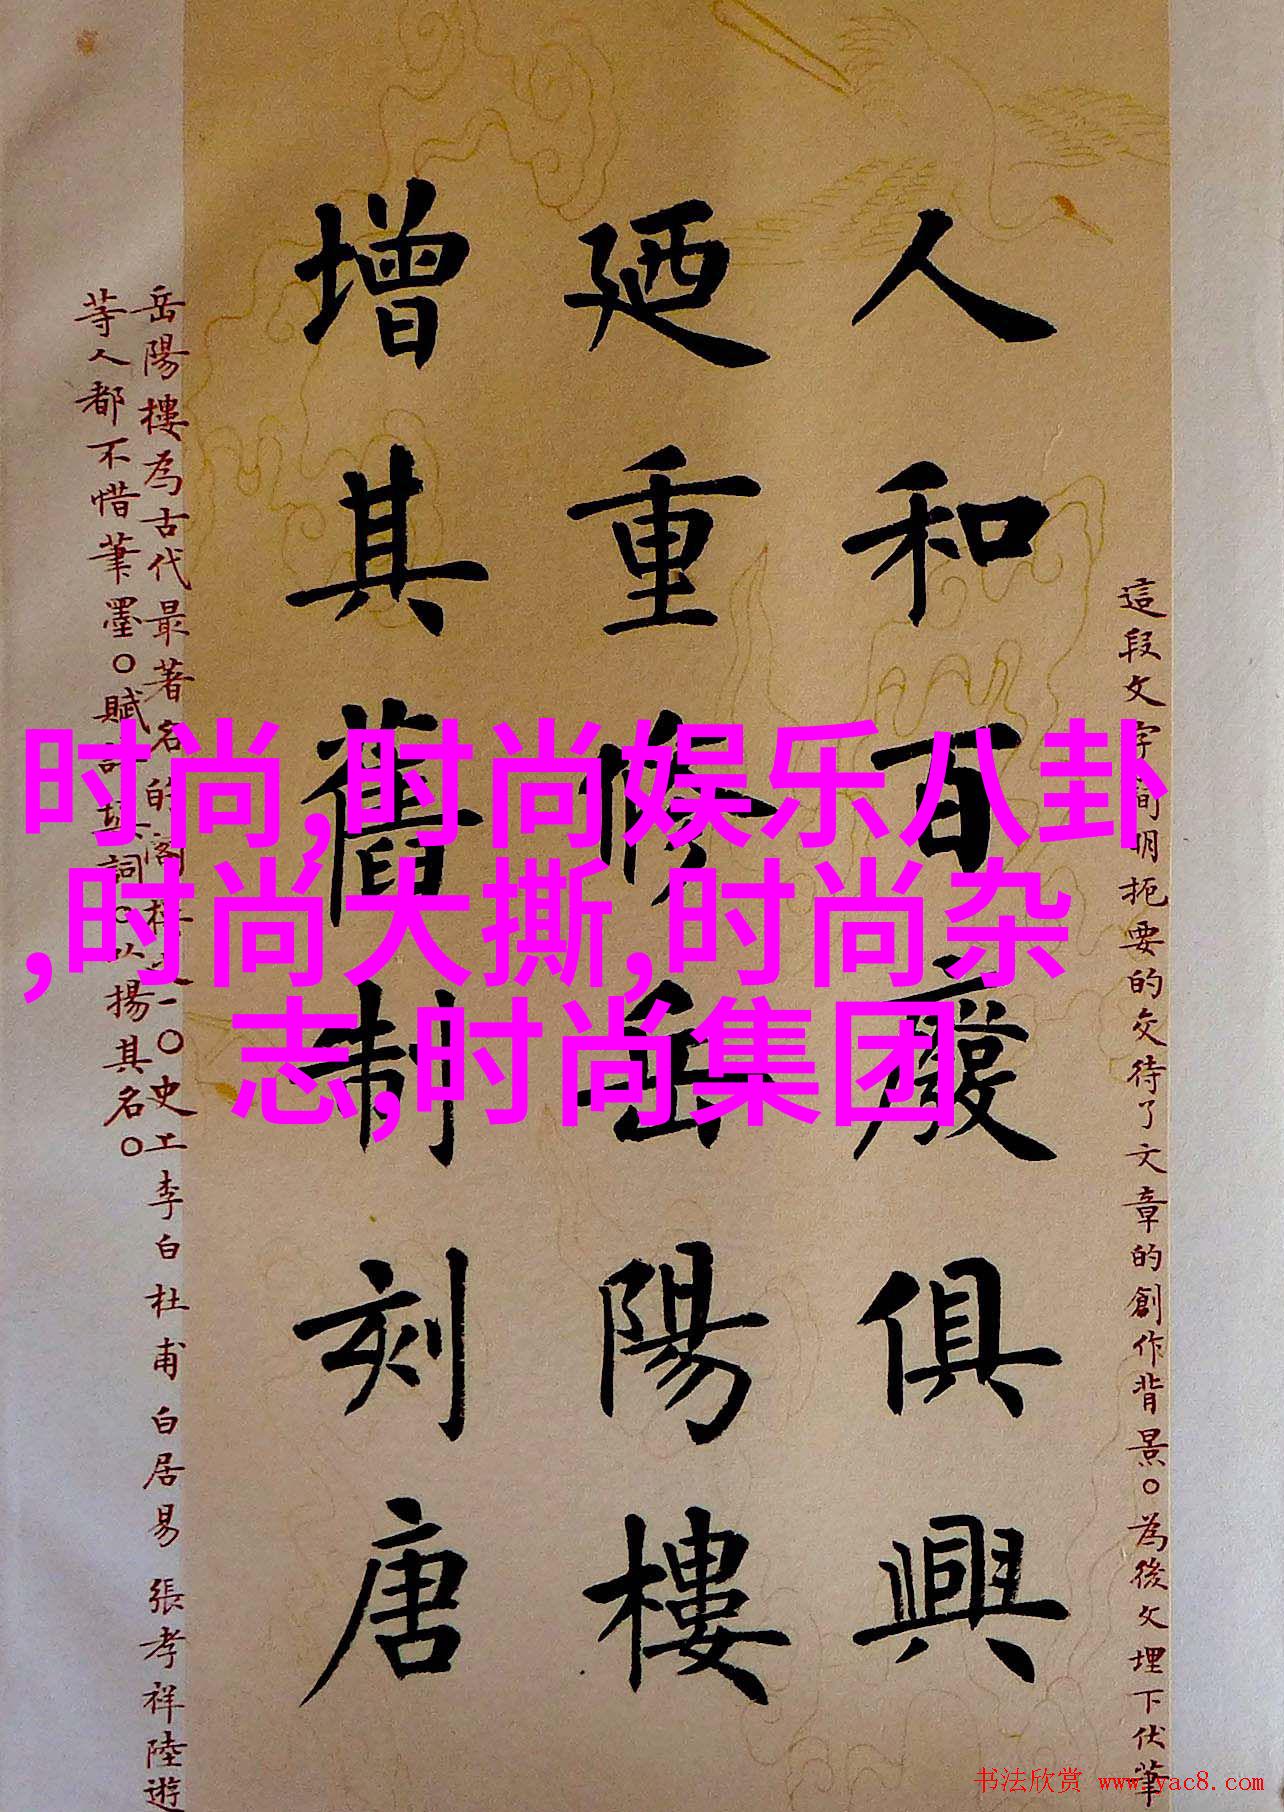 人和百廢俱興
廼重修岳陽樓
增其舊制刻唐
這段文字簡明扼要的交待了文章的創作背景。為後文埋下伏筆
岳陽樓為古代最著名的阁樓之一。史上李白杜甫白居易張孝祥陸遊
等人都不惜筆墨。賦詩填詞。以揚其名。
时尚,时尚娱乐八卦
,时尚大撕,时尚杂
志,时尚集团
书法欣赏 www.yac8.com